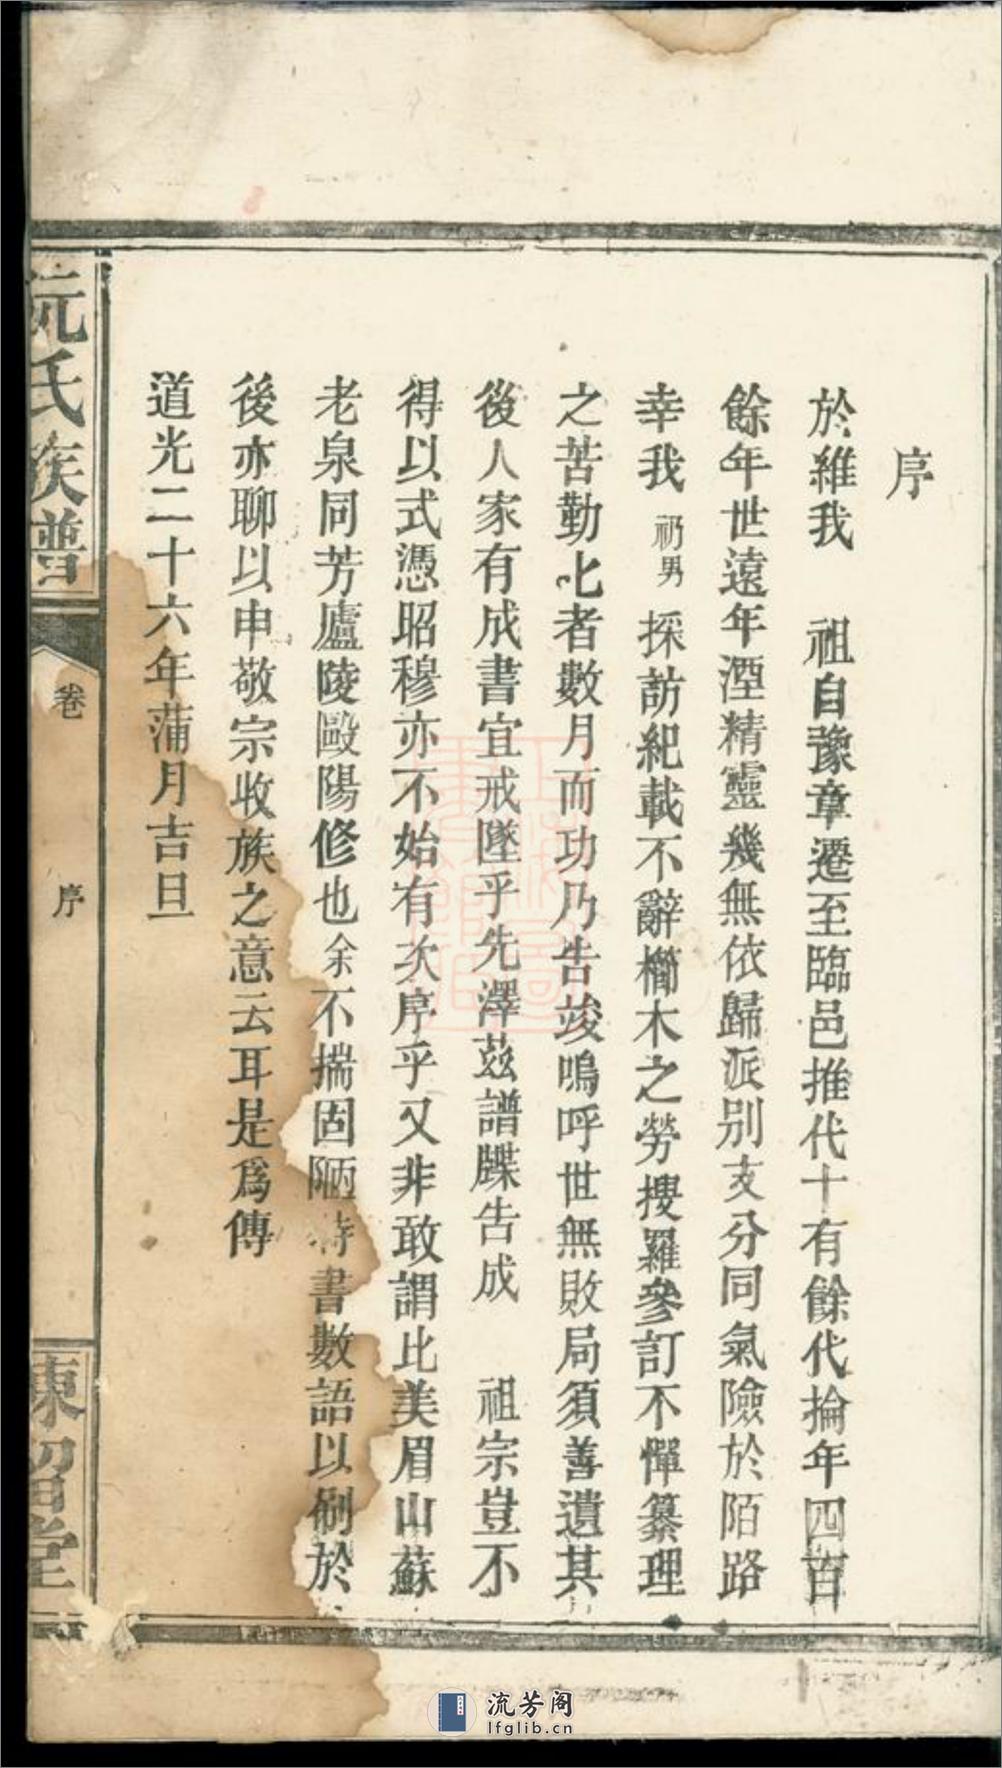 序
於維我　祖自豫章遷至臨邑推代十有餘代掄年四百
餘年世遠年湮精靈幾無依歸派別支分同氣險於陌路
幸我礽男採訪紀載不辭櫛木之勞搜羅參訂不憚纂理
之苦勤比者數月而功乃告竣嗚呼世無敗局須善遺其
後人家有成書宜戒墜乎先澤茲譜牒告成　祖宗豈不
得以式憑昭穆亦不始有次序乎又非敢謂比美眉山蘇
老泉同芳廬陵毆陽修也余不揣固陋特書數語以刷於
後亦聊以申敬宗收族之意云耳是爲傳
道光二十六年蒲月吉旦
阮氏族譜
卷
序
陳留堂
流芳阁
lfglib.cn